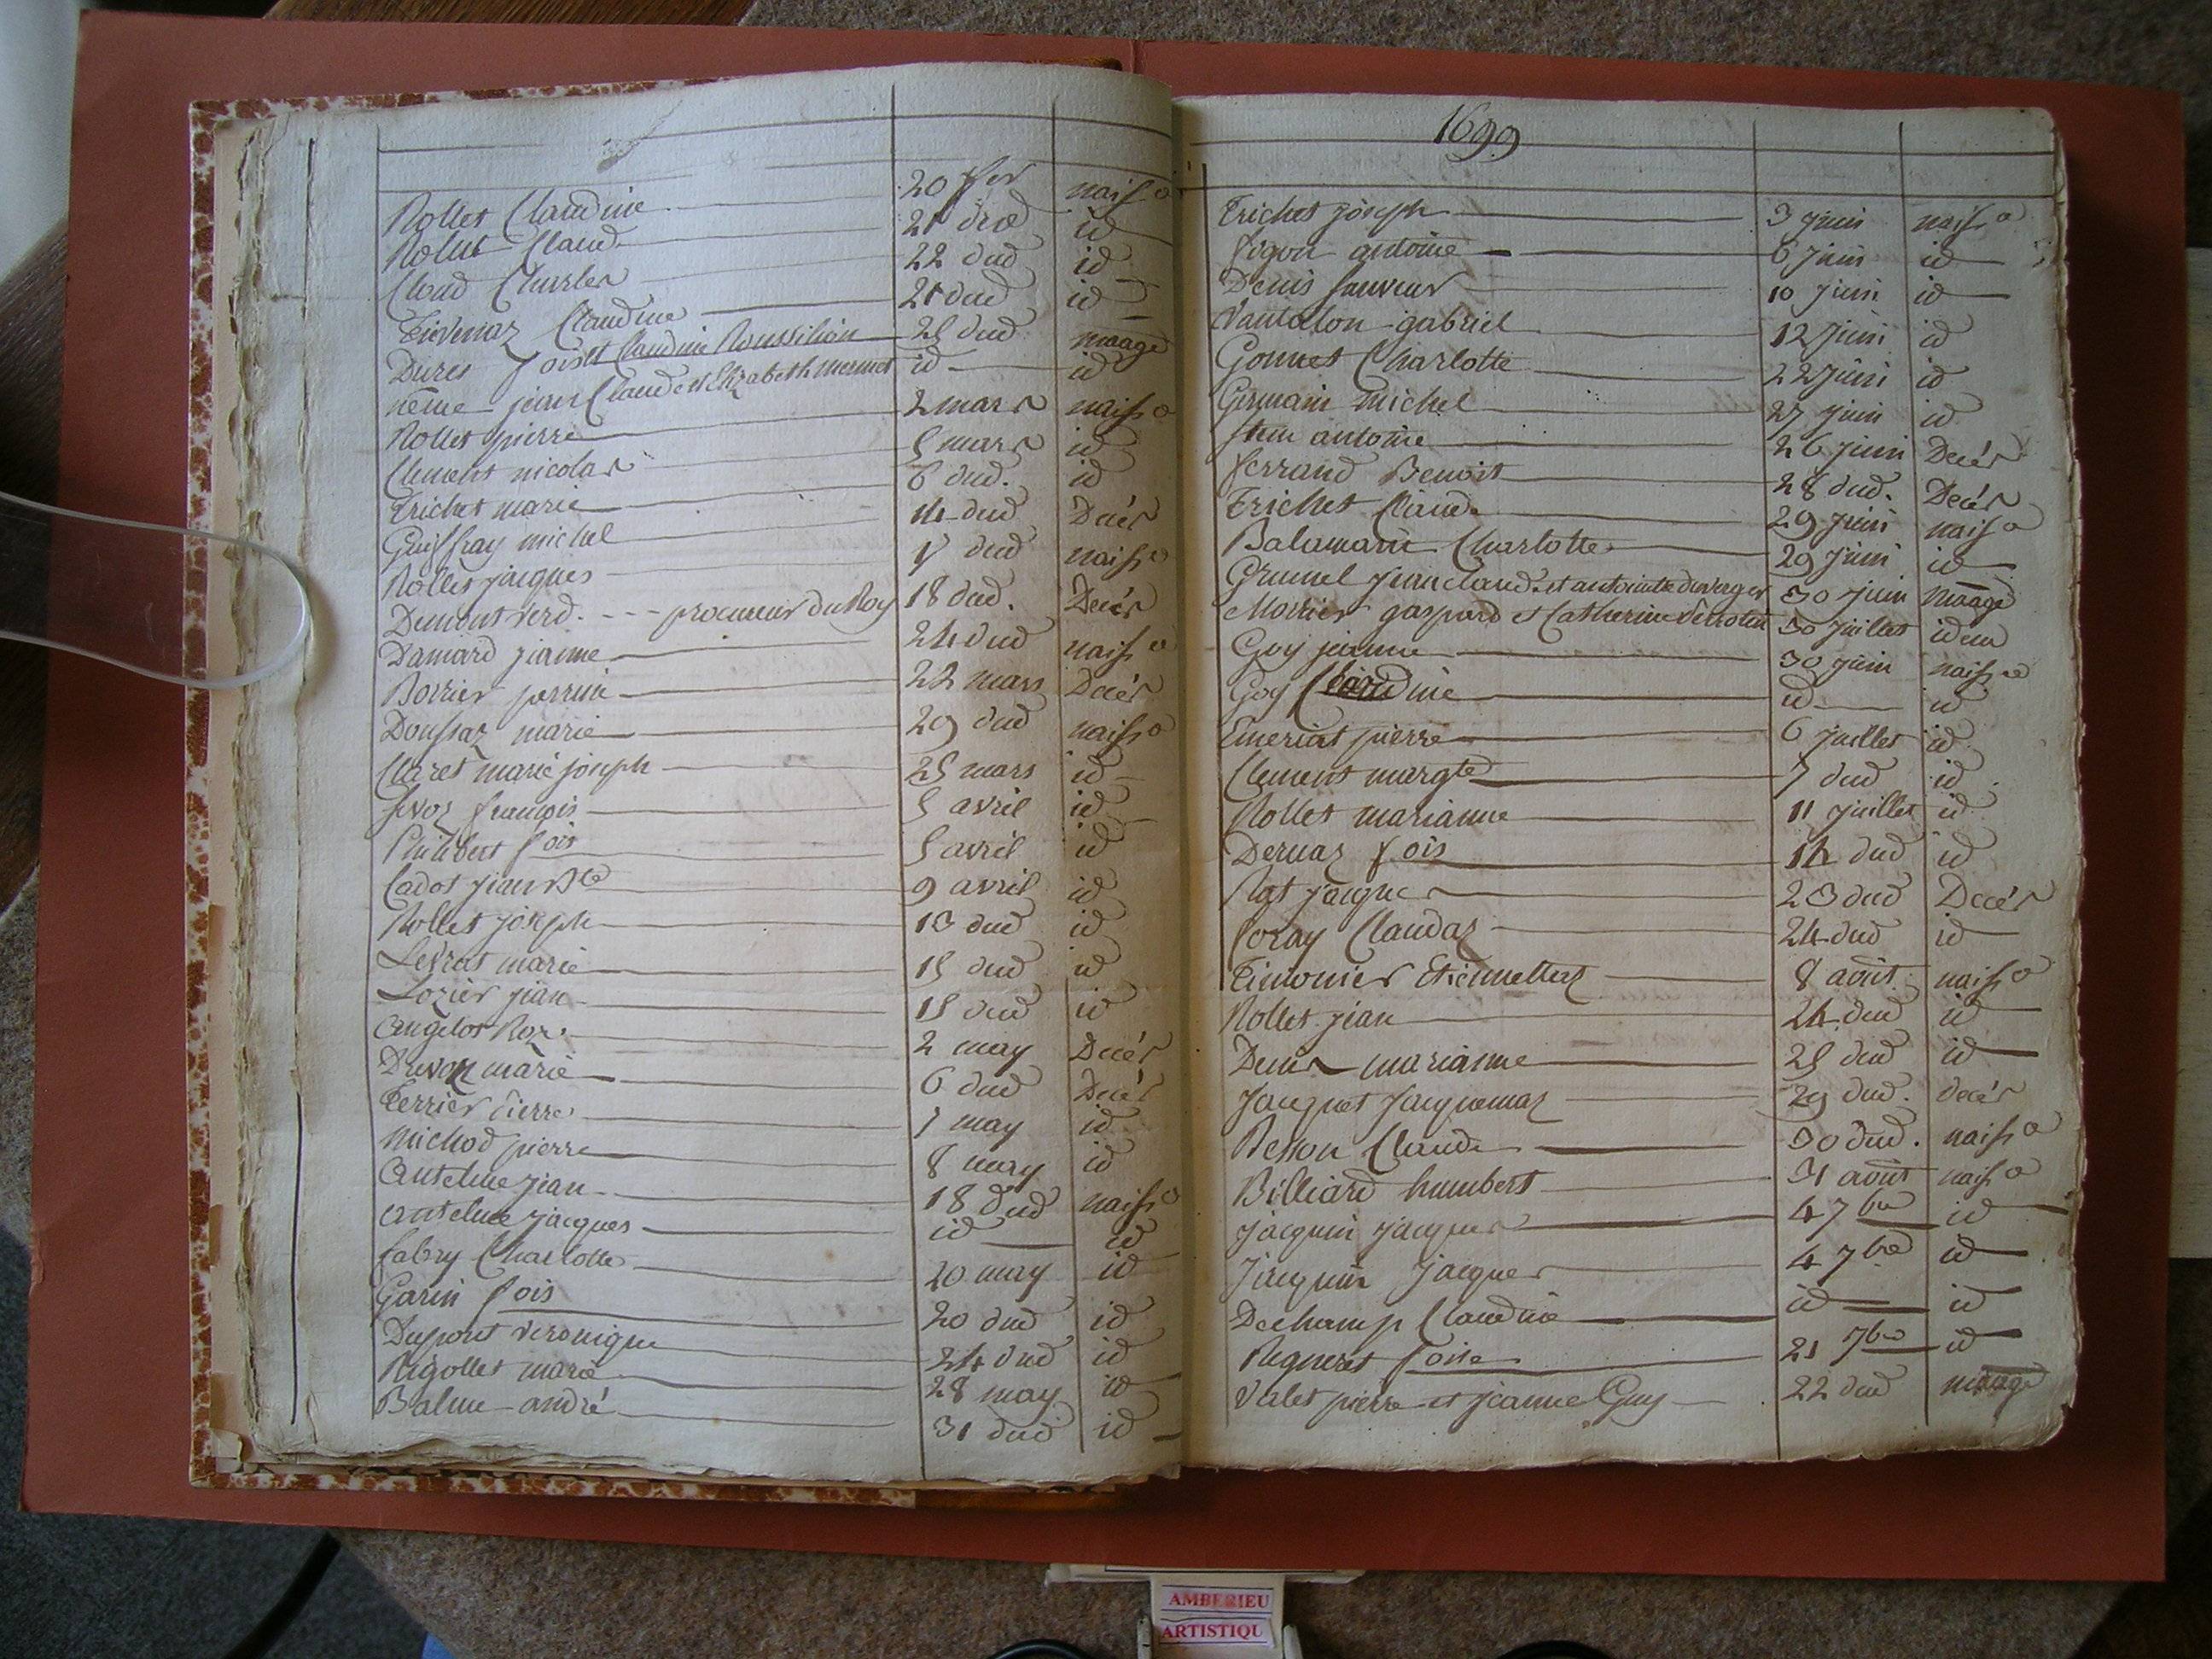 Rollet Claudine 20 fer naisse
Rollet Claud 21 dud id
Cloud Charles 22 dud id
Tievenaz Claudine 21 dud id
Dures fois et Claudine Roussilion 25 dud maage
neme jean Claude et Elizabeth mermet id id
Rollet pierre 2 mars naisse
Clement nicolas 5 mars id
Trichet marie 6 dud. id
Guiffray michel 14 dud Decés
Rollet jacques dud naisse
Dumont Verd. --- procureur du Roy 18 dud. Decés
Damard jeanne 24 dud naisse
Borrier perrine 22 mars Decés
Doussaz marie 29 dud naisse
Claret marie joseph 25 mars id
françois 5 avril id
Philibert fois 5 avril id
Cadot jean Bte 9 avril id
Rollet joseph 13 dud id
Levrat marie 15 dud id
Lozier jean 15 dud id
Angelot Roze 2 may Decés
marie 6 dud Decés
Terrier pierre 7 may id
Michod pierre 8 may id
Antelme jean 18 dud naisse
Antelme jacques id id
fabry Charlotte 20 may id
Garin fois 20 dud id
Dupont veronique 24 dud id
Rigollet marie 28 may id
Balme andré 31 dud id
1699
Trichet joseph 3 juin naisse
figon antoine 6 juin id
Denis sauveur 10 juin id
Vantalon gabriel 12 juin id
Gonnet Charlotte 22 juin id
Germain michel 27 juin id
antoine 26 juin Decés
ferrand Benoit 28 dud. Decés
Trichet Claude 29 juin naisse
Balamant Charlotte 29 juin id
Grumel jean claude et antoinette duverger 30 juin maage
Morrier gaspard et Catherine 30 juillet idem
Goy jeanne 30 juin naisse
Goy Claudine id id
Emeriat pierre 6 juillet id
Clement margte 7 dud id
Rollet marianne 11 juillet id
Dernaz fois 14 dud id
Rat jacques 23 dud Decés
Coray Claudaz 24 dud id
Timonier Etiennettaz 8 août naisse
Rollet jean 24 dud id
Denis marianne 25 dud id
Jacquet Jacquemaz 29 dud. decés
Besson Claude 30 dud. naisse
Billiard humbert 31 août naisse
jacquin jacques 4 7bre id
Jacquin Jacques 4 7bre id
Dechamp Claudine id id
Regneret foise 21 7bre id
Valet pierre et jeanne Guy 22 dud maage
AMBERIEU
ARTISTIQU